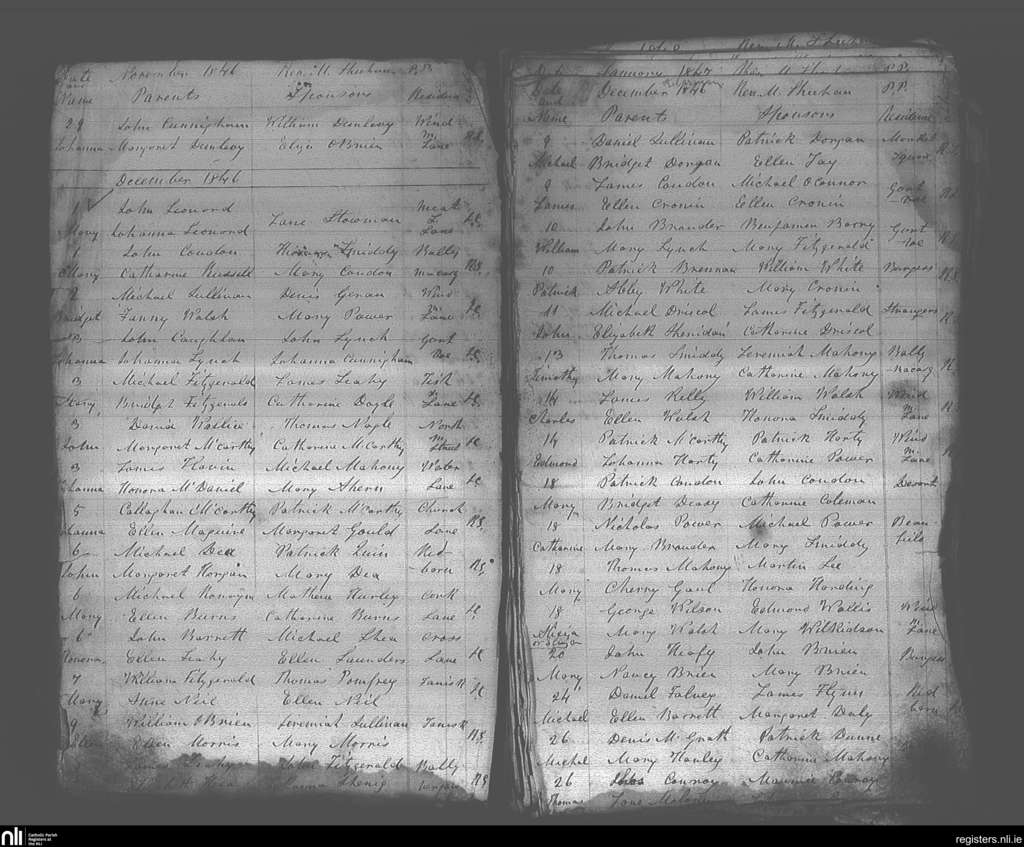 Date November 1846 Rev. M. Sheehan P.P.
Name Parents Sponsors Residence
29 John Cunnigham William Dunlavy Wind
Johanna Margaret Dunlavy Eliza O'Brien m Lane
December 1846
1 John Leonord Jane Slowman meat
Mary Johanna Leonord Lane
1 John Condon Sniddy Bally
Mary Catharine Russell Mary Condon macarg
2 Michael Sullivan Denis Geran Wind
Bridget Fanny Walsh Mary Power m Lane
3 John Caughlan John Lynch Gort
Johanna Johanna Lynch Johanna Cunnigham roe
3 Michael Fitzgerald James Leahy Fish
Mary Bridget Fitzgerald Catharine Dogle Lane
3 David Wallice Thomas Nagle North
John Margaret McCarthy Catharine McCarthy m Street
3 James Flavin Michael Mahony Water
Johanna Honora McDaniel Mary Ahern Lane
5 Callaghan McCarthy Patrick McCarthy Church
Johanna Ellen Maguire Margaret Gould Lane
6 Michael Dea Patrick Quin Red
John Margaret Horgan Mary Dea barn
6 Michael Mathew Hurley Cork
Mary Ellen Burns Catharine Burns Lane
6 John Barrett Michael Shea Cross
Honora Ellen Leahy Ellen Saunders Lane
7 William Fitzgerald Thomas Pomfrey
Mary Jane Neil Ellen Neil
9 William O'Brien Jeremiah Sullivan
Ellen Ellen Morris Mary Morris
John Fitzgerald Bally
Rev. M. Sheehan
Date January 1847 Rev. M. Sheehan P.P.
Date and December 1846 Rev. M. Sheehan P.P.
Name Parents Sponsors Residence
9 Daniel Sullivan Patrick Dorgan Market
Michael Bridget Dorgan Ellen Foy Square
9 James Condon Michael O'Connor Gort
James Ellen Cronin Ellen Cronin roe
10 John Brander Benjamen Barry Gort
William Mary Lynch Mary Fitzgerald roe
10 Patrick Brennan William White Burgess
Patrick Abby White Mary Cronin
11 Michael Driscol James Fitzgerald Strangers
John Elizabeth Sheridan Catharine Driscol
13 Thomas Sniddy Jeremiah Mahony Bally
Timothy Mary Mahony Catharine Mahony macarg
14 James Kelly William Walsh Wind
Charles Ellen Walsh Honora Sniddy m Lane
14 Patrick McCarthy Patrick Harty Wind
Edmond Johanna Harty Catharine Power m Lane
18 Patrick Condon John Condon
Mary Bridget Deady Catharine Coleman
18 Nicholas Power Michael Power Beau-
Catharine Mary Brauder Mary Sniddy field
18 Thomas Mahony Martin Lee
Mary Cherry Gaul Honora Harding
18 George Wilson Edmond Wallis Wind
Alicia Mary Walsh Mary Wilkidson m Lane
or Eliza
20 John Heafy John Brien Burgess
Mary Nancy Brien Mary Brien
24 Daniel Falvey James Flynn Red
Michael Ellen Barrett Margaret Daly barn
26 Denis McGrath Patrick Dunne
Michel Mary Hanley Catharine Mahony
26 Conroy Maurice
Thomas Jane
nli Catholic Parish
Registers at
the NLI
registers.nli.ie